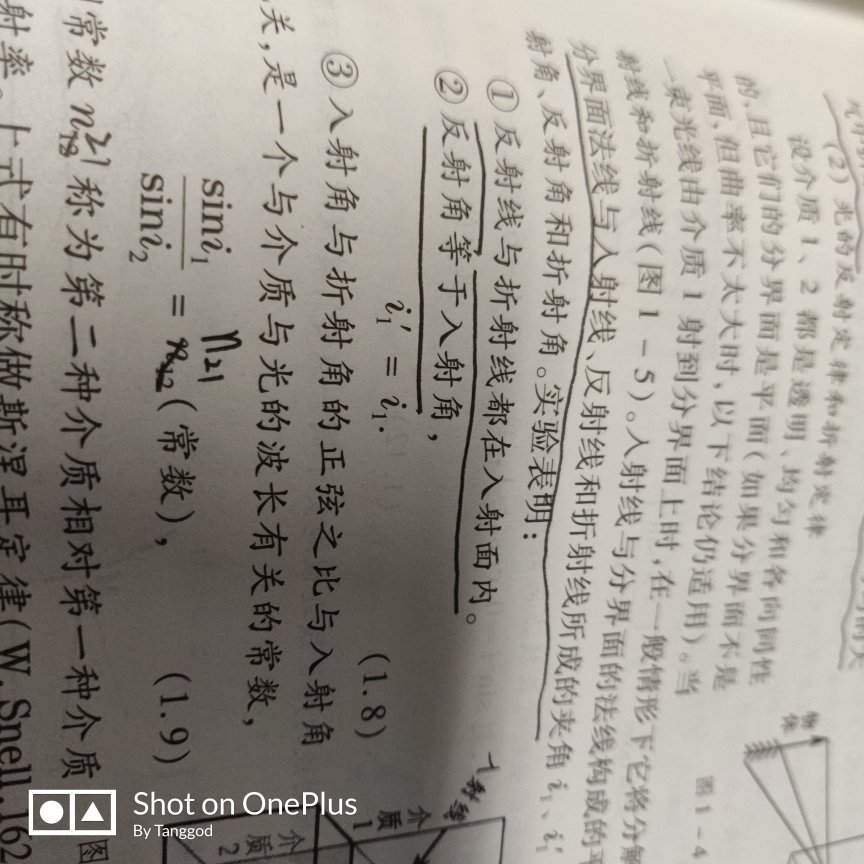 (2) 光的反射定律和折射定律
设介质 1、2 都是透明、均匀和各向同性
的,且它们的分界面是平面(如果分界面不是
平面,但曲率不太大时,以下结论仍适用)。当
一束光线由介质 1 射到分界面上时,在一般情形下它将分解
射线和折射线(图 1-5)。入射线与分界面的法线构成的平
分界面法线与入射线、反射线和折射线所成的夹角 i₁、i₁′
射角、反射角和折射角。实验表明:
① 反射线与折射线都在入射面内。
② 反射角等于入射角,
i₁′ = i₁. (1.8)
③ 入射角与折射角的正弦之比与入射角
关,是一个与介质与光的波长有关的常数,
n21
sini₁/sini₂ = n₁₂(常数), (1.9)
常数 n 21 称为第二种介质相对第一种介质
射率。上式有时称做斯涅耳定律(W. Snell, 162
图 1-4
物体
介质1
介质2
图
Shot on OnePlus
By Tanggod